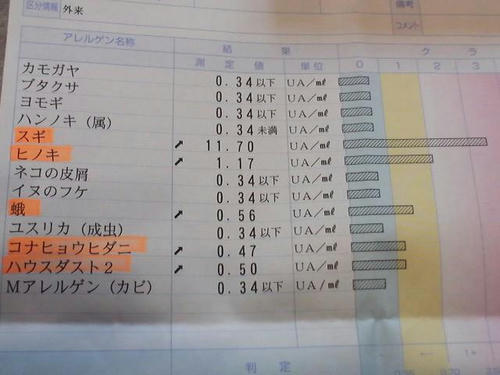 区分情報 外来
備考
コメント
アレルゲン名称 結果 クラ
測定値 単位 0 1 2 3
カモガヤ 0.34以下 UA/mℓ
ブタクサ 0.34以下 UA/mℓ
ヨモギ 0.34以下 UA/mℓ
ハンノキ(属) 0.34未満 UA/mℓ
スギ ↗ 11.70 UA/mℓ
ヒノキ ↗ 1.17 UA/mℓ
ネコの皮屑 0.34以下 UA/mℓ
イヌのフケ 0.34以下 UA/mℓ
蛾 ↗ 0.56 UA/mℓ
ユスリカ(成虫) 0.34以下 UA/mℓ
コナヒョウヒダニ ↗ 0.47 UA/mℓ
ハウスダスト2 ↗ 0.50 UA/mℓ
Mアレルゲン(カビ) 0.34以下 UA/mℓ
判定